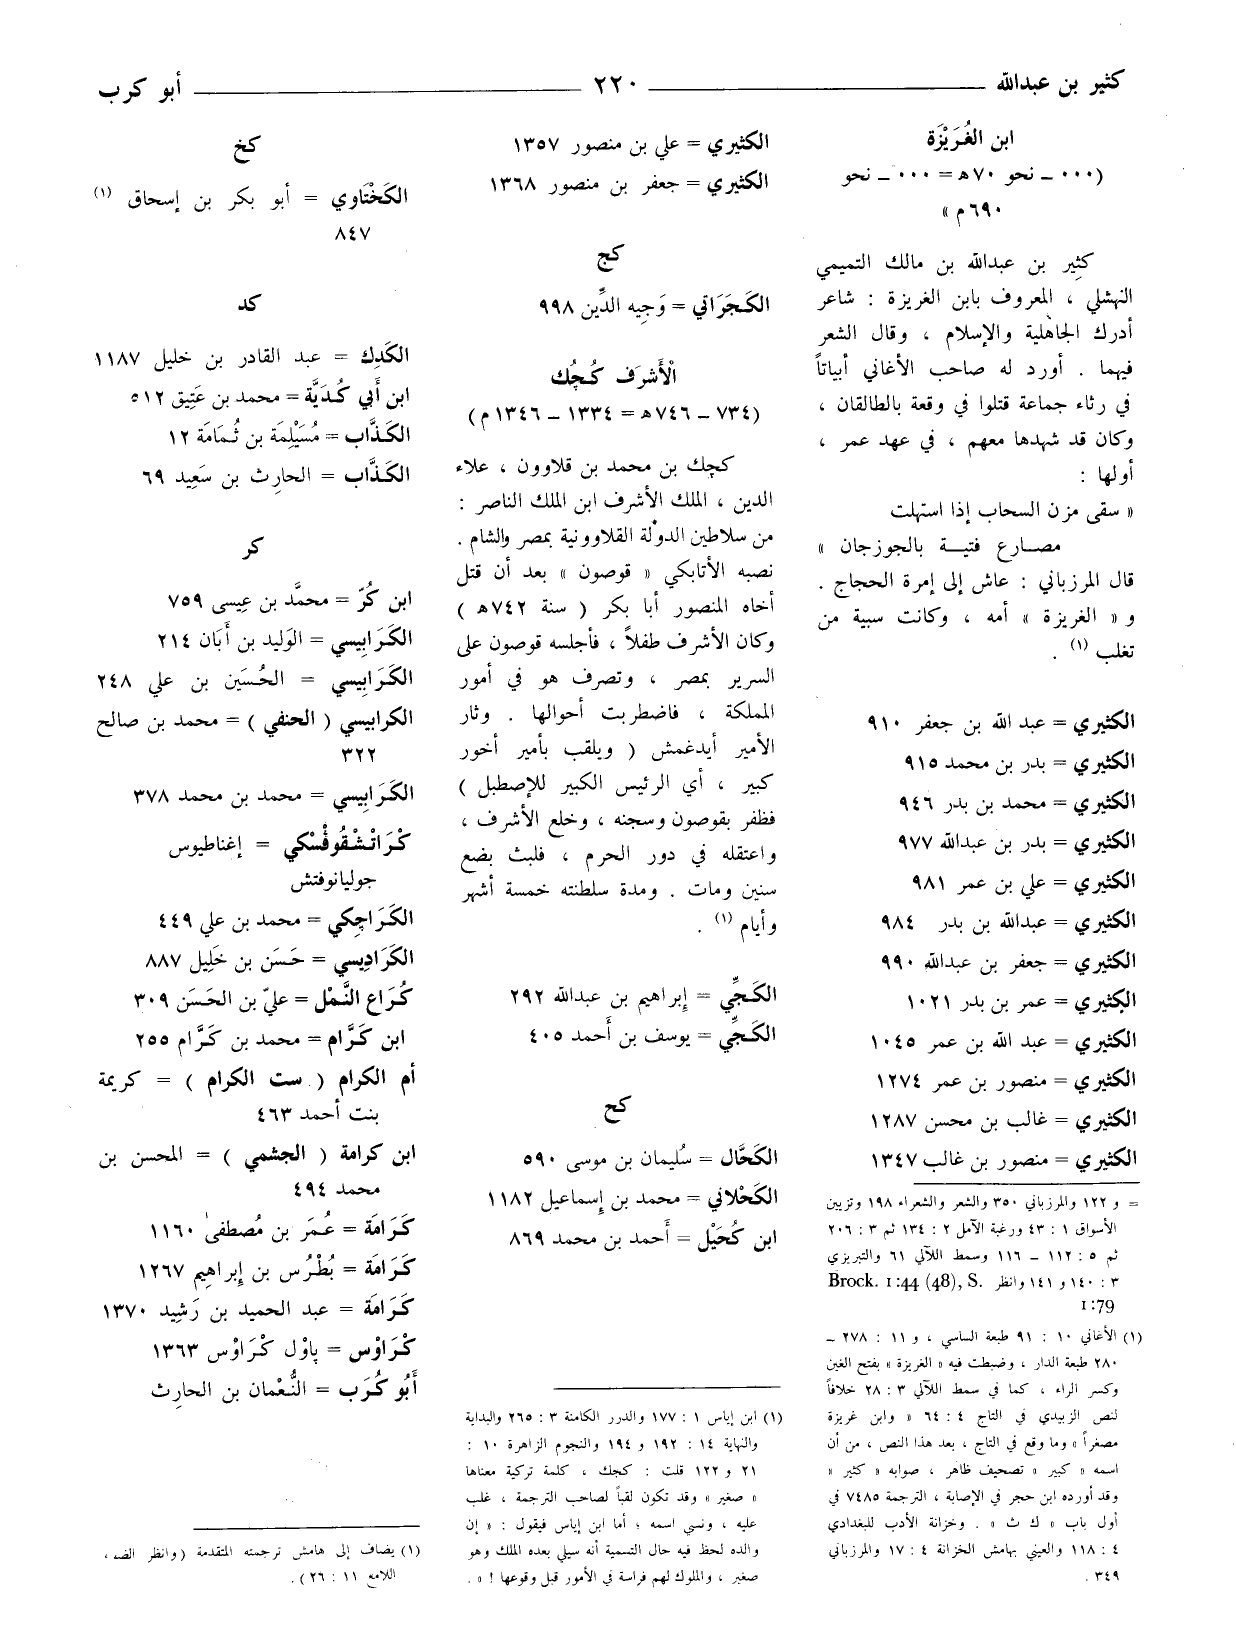 كثير بن عبدالله
٢٢٠
أبو كرب
ابن الغُرَيْزَة
(٠٠٠ ـ نحو ٧٠ هـ = ٠٠٠ ـ نحو
٦٩٠ م »
كثِير بن عبدالله بن مالك التميمي
النهشلي ، المعروف بابن الغريزة : شاعر
أدرك الجاهلية والإسلام ، وقال الشعر
فيهما . أورد له صاحب الأغاني أبياتاً
في رثاء جماعة قتلوا في وقعة بالطالقان ،
وكان قد شهدها معهم ، في عهد عمر ،
أولها :
« سقى مزن السحاب إذا استهلت
مصارع فتية بالجوزجان »
قال المرزباني : عاش إلى إمرة الحجاج .
و « الغريزة » أمه ، وكانت سبية من
تغلب (١) .
الكثيري = عبد الله بن جعفر ٩١٠
الكثيري = بدر بن محمد ٩١٥
الكثيري = محمد بن بدر ٩٤٦
الكثيري = بدر بن عبدالله ٩٧٧
الكثيري = علي بن عمر ٩٨١
الكثيري = عبدالله بن بدر ٩٨٤
الكثيري = جعفر بن عبدالله ٩٩٠
الكثيري = عمر بن بدر ١٠٢١
الكثيري = عبد الله بن عمر ١٠٤٥
الكثيري = منصور بن عمر ١٢٧٤
الكثيري = غالب بن محسن ١٢٨٧
الكثيري = منصور بن غالب ١٣٤٧
= و ١٢٢ والمرزباني ٣٥٠ والشعر والشعراء ١٩٨ وتزيين
الأسواق ١ : ٤٣ ورغبة الآمل ٢ : ١٣٤ ثم ٣ : ٢٠٦
ثم ٥ : ١١٢ ـ ١١٦ وسمط اللآلي ٦١ والتبريزي
٣ : ١٤٠ و ١٤١ وانظر Brock. 1:44 (48), S.
1:79
(١) الأغاني ١٠ : ٩١ طبعة الساسي ، و ١١ : ٢٧٨ ـ
٢٨٠ طبعة الدار ، وضبطت فيه « الغريزة » بفتح الغين
وكسر الراء ، كما في سمط اللآلي ٣ : ٢٨ خلافاً
لنص الزبيدي في التاج ٤ : ٦٤ « وابن غريزة
مصغراً » وما وقع في التاج ، بعد هذا النص ، من أن
اسمه « كبير » تصحيف ظاهر ، صوابه « كثير »
وقد أورده ابن حجر في الإصابة ، الترجمة ٧٤٨٥ في
أول باب « ك ث » . وخزانة الأدب للبغدادي
٤ : ١١٨ والعيني بهامش الخزانة ٤ : ١٧ والمرزباني
٣٤٩ .
الكثيري = علي بن منصور ١٣٥٧
الكثيري = جعفر بن منصور ١٣٦٨
كج
الكَجَرَاتي = وَجيه الدِّين ٩٩٨
الْأَشرَف كُجُك
(٧٣٤ ـ ٧٤٦ هـ = ١٣٣٤ ـ ١٣٤٦ م)
كجك بن محمد بن قلاوون ، علاء
الدين ، الملك الأشرف ابن الملك الناصر :
من سلاطين الدولة القلاوونية بمصر والشام .
نصبه الأتابكي « قوصون » بعد أن قتل
أخاه المنصور أبا بكر ( سنة ٧٤٢ هـ )
وكان الأشرف طفلاً ، فأجلسه قوصون على
السرير بمصر ، وتصرف هو في أمور
المملكة ، فاضطربت أحوالها . وثار
الأمير أيدغمش ( ويلقب بأمير أخور
كبير ، أي الرئيس الكبير للإصطبل )
فظفر بقوصون وسجنه ، وخلع الأشرف ،
واعتقله في دور الحرم ، فلبث بضع
سنين ومات . ومدة سلطنته خمسة أشهر
وأيام (١) .
الكَجِّي = إبراهيم بن عبدالله ٢٩٢
الكَجِّي = يوسف بن أحمد ٤٠٥
كح
الكَحَّال = سُليمان بن موسى ٥٩٠
الكَحْلاني = محمد بن إسماعيل ١١٨٢
ابن كُحَيْل = أحمد بن محمد ٨٦٩
(١) ابن إياس ١ : ١٧٧ والدرر الكامنة ٣ : ٢٦٥ والبداية
والنهاية ١٤ : ١٩٢ و ١٩٤ والنجوم الزاهرة ١٠ :
٢١ و ١٢٢ قلت : كجك ، كلمة تركية معناها
« صغير » وقد تكون لقباً لصاحب الترجمة ، غلب
عليه ، ونسي اسمه ؛ أما ابن إياس فيقول : « إن
والده لحظ فيه حال التسمية أنه سيلي بعده الملك وهو
صغير ، والملوك لهم فراسة في الأمور قبل وقوعها ! » .
كخ
الكَخْتَاوي = أبو بكر بن إسحاق (١)
٨٤٧
كد
الكَدِك = عبد القادر بن خليل ١١٨٧
ابن أبي كُدَيَّة = محمد بن عَتِيق ٥١٢
الكَذَّاب = مُسَيْلِمَة بن ثُمَامَة ١٢
الكَذَّاب = الحارِث بن سَعِيد ٦٩
كر
ابن كُرّ = محمَّد بن عِيسى ٧٥٩
الكَرَابِيسي = الوَليد بن أَبَان ٢١٤
الكَرَابِيسي = الحُسَين بن علي ٢٤٨
الكرابيسي ( الحنفي ) = محمد بن صالح
٣٢٢
الكَرَابِيسي = محمد بن محمد ٣٧٨
كْرَاتْشْقُوفْسْكي = إغناطيوس
جوليانوفتش
الكَرَاجكي = محمد بن علي ٤٤٩
الكَرَادِيسي = حَسَن بن خَلِيل ٨٨٧
كُرَاع النَّمْل = عليّ بن الحَسَن ٣٠٩
ابن كَرَّام = محمد بن كَرَّام ٢٥٥
أم الكرام ( ست الكرام ) = كريمة
بنت أحمد ٤٦٣
ابن كرامة ( الجشمي ) = المحسن بن
محمد ٤٩٤
كَرَامَة = عُمَر بن مُصطفىٰ ١١٦٠
كَرَامَة = بُطْرُس بن إبراهيم ١٢٦٧
كَرَامَة = عبد الحميد بن رَشيد ١٣٧٠
كْرَاوْس = پاوْل كْرَاوْس ١٣٦٣
أَبُو كُرَب = النُّعْمان بن الحارث
(١) يضاف إلى هامش ترجمته المتقدمة (وانظر الضـء ،
اللامع ١١ : ٢٦) .